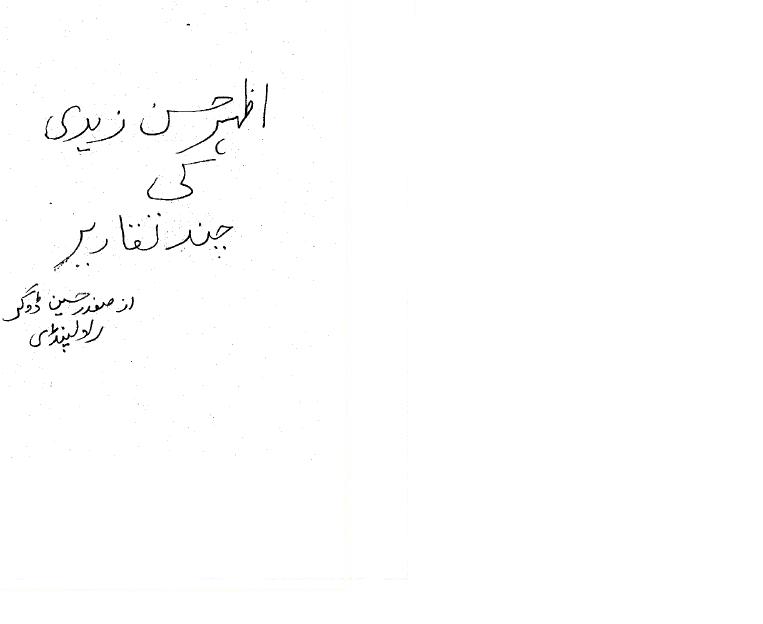 اظہر حسن زیدی
کی
چند تقاریر
از صفدر حسین ڈوگر
راولپنڈی